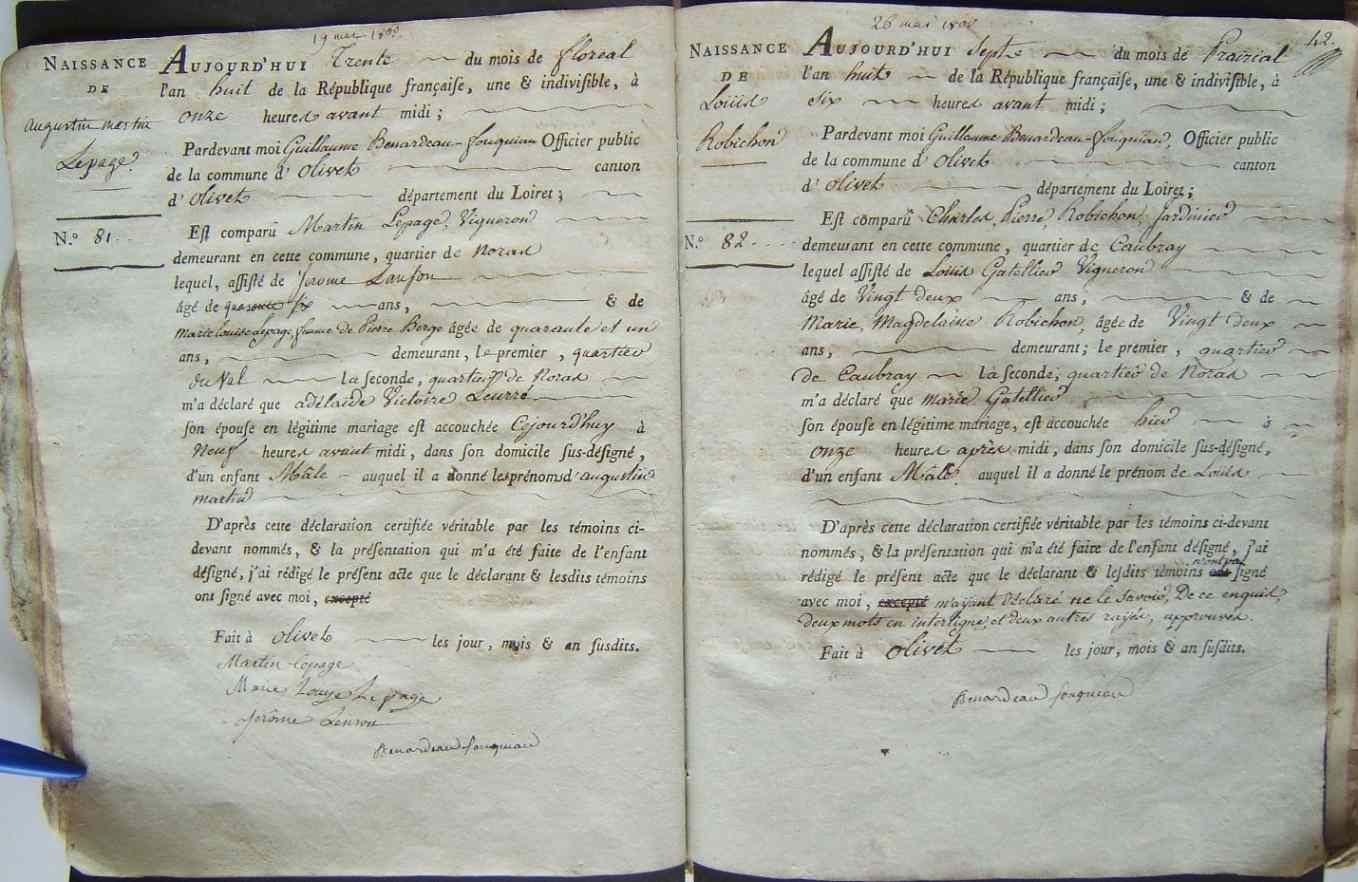 19 mai 1800
NAISSANCE
DE
augustin martin
Lepage
N.º 81
AUJOURD'HUI Trente du mois de floreal
l'an huit de la République françaiſe, une & indiviſible, à
onze heures avant midi ;
Pardevant moi Guillaume Benardeau-fouquiau Officier public
de la commune d' Olivet canton
d' Olivet département du Loiret ;
Eſt comparû Martin Lepage, Vigneron
demeurant en cette commune, quartier de Noras
lequel, aſſiſté de Jerome
âgé de quarante six ans, & de
Marie Louise Lepage, femme de Pierre Berge âgée de quarante et un
ans, demeurant, le premier, quartier
du Val la ſeconde, quartier de Noras
m'a déclaré que adélaide Victoire Leurré
ſon épouſe en légitime mariage eſt accouchée Cejourd'huy à
Neuf heures avant midi, dans ſon domicile ſus-déſigné,
d'un enfant Mâle auquel il a donné lesprénoms d'augustin
martin
D'après cette déclaration certifiée véritable par les témoins ci-
devant nommés, & la préſentation qui m'a été faite de l'enfant
déſigné, j'ai rédigé le préſent acte que le déclarant & leſdits témoins
ont ſigné avec moi, excepté
Fait à Olivet les jour, mois & an ſusdits.
Martin lepage
Marie Louise Le page
Jérôme
Benardeau-fouquiau
26 mai 1800
42.
NAISSANCE
DE
Louis
Robichon
N.º 82
AUJOURD'HUI Sept du mois de Prairial
l'an huit de la République françaiſe, une & indiviſible, à
six heures avant midi ;
Pardevant moi Guillaume Benardeau-fouquiau, Officier public
de la commune d' Olivet canton
d' Olivet département du Loiret ;
Eſt comparû Charles, Pierre, Robichon, Jardinier
demeurant en cette commune, quartier de Caubray
lequel aſſiſté de Louis Gatellier Vigneron
âgé de Vingt deux ans, & de
Marie, Magdelaine Robichon, âgée de Vingt deux
ans, demeurant ; le premier, quartier
de Caubray la ſeconde, quartier de Noras
m'a déclaré que marie Gatellier
ſon épouſe en légitime mariage, eſt accouchée hier à
onze heures après midi, dans ſon domicile ſus-déſigné,
d'un enfant Mâle auquel il a donné le prénom de Louis
D'après cette déclaration certifiée véritable par les témoins ci-devant
nommés, & la préſentation qui m'a été faite de l'enfant déſigné, j'ai
rédigé le préſent acte que le déclarant & leſdits témoins n'ont pas ont ſigné
avec moi, excepté n'ayant déclaré ne le Savoir, De ce enquis,
deux mots en interligne, et deux autres rayés, approuvés.
Fait à Olivet les jour, mois & an ſuſdits.
Benardeau fouquiau